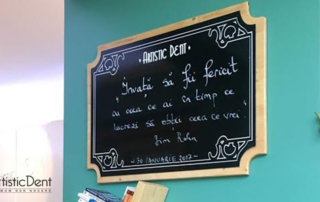 • ARTISTIC DENT •
"Învață să fii fericit
cu ceea ce ai în timp ce
lucrezi să obții ceea ce vrei."
Jim Rohn
~ 30 IANUARIE 2017 ~
ArtisticDent